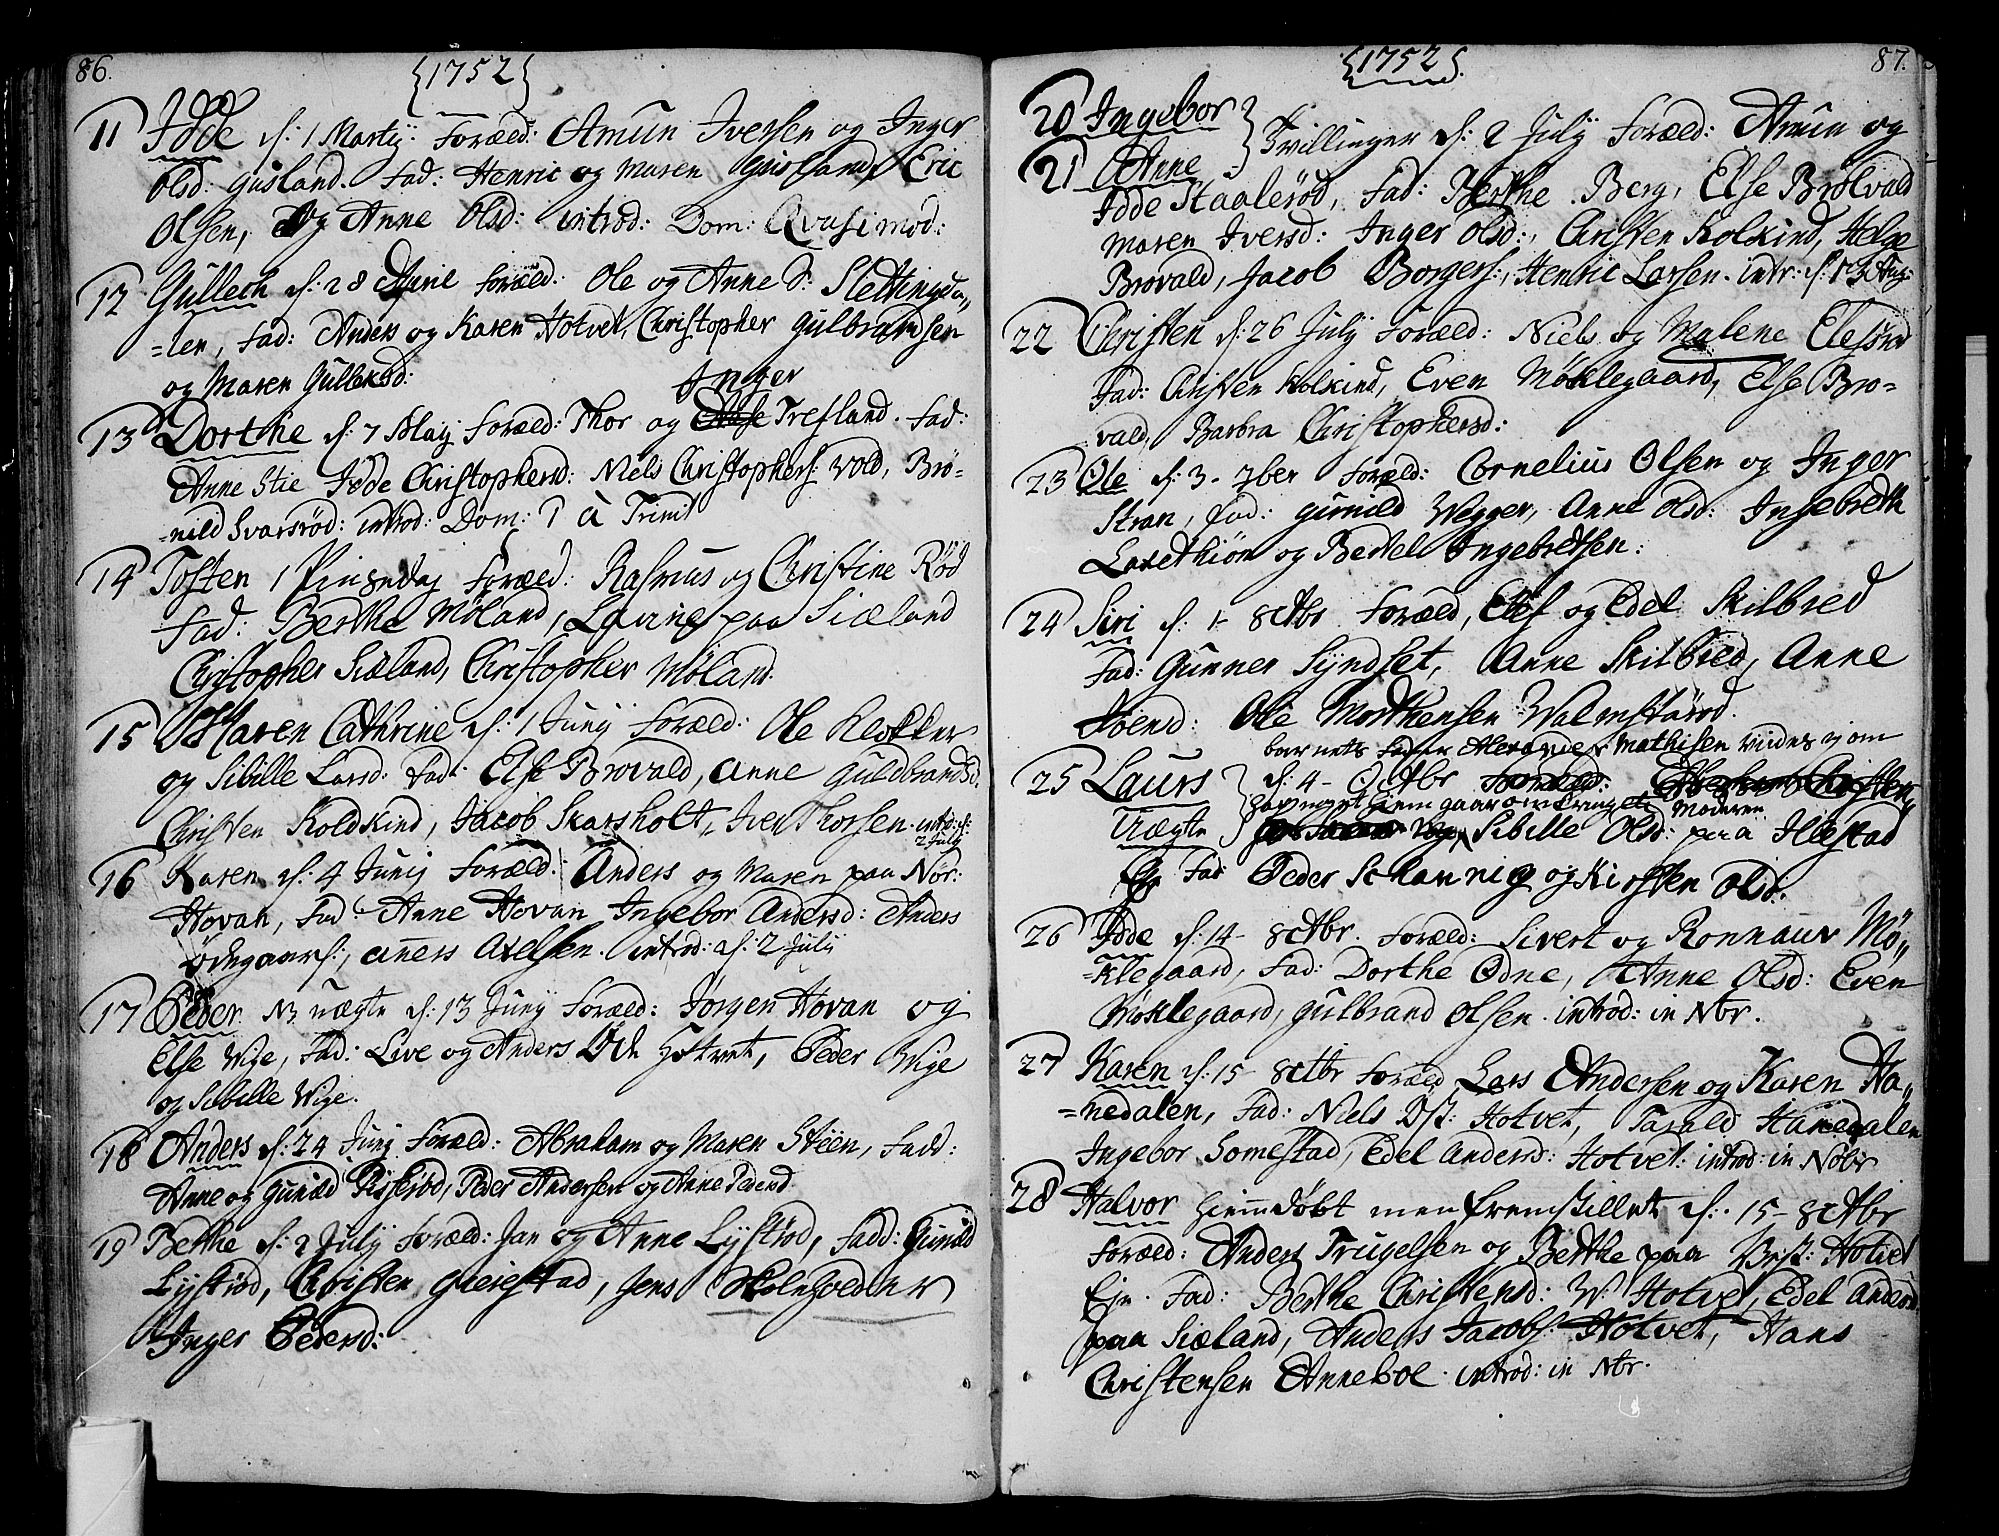 86.
{1752}
11 Idde d: 1 Martij: Foræld: Amun Iversen og Inger
Olsd: Gusland. Fad: Henric og Maren Gusland, Eric
Olsen, og Anne Olsd: introd: Dom: Qvasimod:
12 Gullech d: 28 Aprie Foræld: Ole og Anne S: Slettingda„
=len, Fad: Anders og Karen Hotvet, Christopher Gulbrandsen
og Maren Gulleksd:
Inger
13 Dorthe d: 7 Maij Foræld: Thor og Trefland. Fad:
Anne Stie Idde Christophersd: Niels Christophers: Vold, Brø-
=nild Svarsrød: introd: Dom: 1 à Trinit
14 Tosten 1 Pinsedag Foræld: Rasmus og Christine Rød
Fad: Berthe Møland, Lavine paa Siæland
Christopher Siæland, Christopher Møland.
15 Maren Cathrine d: 1 Junij Foræld: Ole Klokker
og Sibille Larsd: Fad: Else Brovald, Anne Guldbrandsd.
Christen Koldkind, Jacob Skarsholt, Iver Thorsen. introd: d:
2 July
16 Karen d: 4 Junij Foræld: Anders og Maren paa Nør:
Hovan, Fad: Anne Hovan Ingebor Andersd: Anders
Ødegaards:, Aners Axelsen. introd: d: 2 Julij
17 Peder NB uægte d: 13 Junij Foræld: Jørgen Hovan og
Else Wige, Fad: Live og Anders Hotvet, Peder Wige
og Sibille Wige.
18 Anders d: 24 Junij Foræld: Abraham og Maren Steen, Fadd:
Anne og Gunild Peder Andersen og Anne Pedersd
19 Berthe d: 2 July Foræld: Jan og Anne Lystrød, Fadd: Gunild
Lystrød, Christen Gieiestad, Jens
Inger Pedersd:
87.
{1752}
20 Ingebor
21 Anne } Tvillinger d: 2 Julij Foræld: Amun og
Idde Staalerød, Fad: Berthe Berg, Else Brovald
Maren Iversd: Inger Olsd:, Christen Kolkind, Helge
Brovald, Jacob Borgers:, Henric Larsen. intr: d: 13 Aug:
22 Christen d: 26 Julij Foræld: Niels og Malene
Fad: Christen Kolkind, Even Møklegaard, Else Bro-
vald, Barbra Christophersd:
23 Ole d: 3- 7ber Foræld: Cornelius Olsen og Inger
Stran, Fad: Gunild Wegger, Anne Olsd: Ingebreth
og Bertel Ingebretsen:
24 Siri d: 1- 8ctbr Foræld, Elef og Edel Skilbred
Fad: Gunner Syndset, Anne Skilbred, Anne
Ole Morthensen
barnets Fader Alexander Mathisen vides ej om
25 Laurs } d: 4- Octbr
hans hiem gaar omkring Moderen
Uægte } Sibille Olsd: paa Illestad
Fad Peder og Kirsten Olsd:
26 Idde d: 14- 8ctbr. Foræld: Sivert og Ronnauv Mø„
=klegaard, Fad: Dorthe Odne, Anne Olsd: Even
Møklegaard, Gulbrand Olsen. introd: in Nbr.
27 Karen d: 15- 8ctbr Foræld Lars Andersen og Karen Ha„
=nedalen, Fad: Niels Ost: Hotvet, Tarald Hanedalen
Ingebor Somestad, Edel Andersd: Hotvet: introd: in Nobr
28 Halvor hiemdøbt men fremstillet d: 15- 8ctbr
Foræld: Anders Trugelsen og Berthe paa Hotvet
Eje. Fad: Berthe Christensd: W: Hotvet, Edel Andersd
paa Siæland, Anders Jacobs: Hotvet, Hans
Christensen Anneboe. introd: in Nbr.